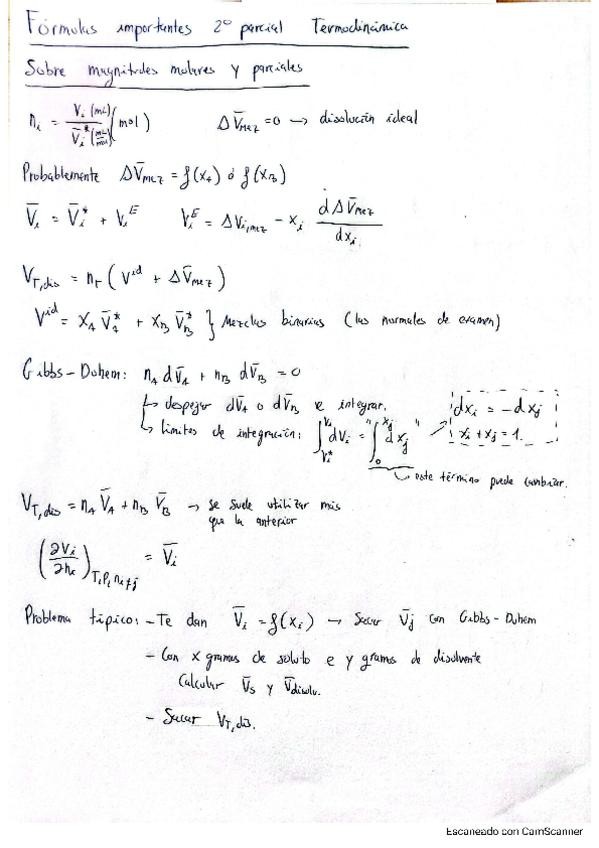 Fórmulas importantes 2º parcial Termodinámica
Sobre magnitudes molares y parciales
n_i = V_i (mL) / V̄_i* (mL/mol) (mol)    ΔV̄mez = 0 → disolución ideal
Probablemente ΔV̄mez = f(x_A) ó f(x_B)
V̄_i = V̄_i* + V_i^E    V_i^E = ΔV_i,mez - x_i dΔV̄mez / dx_i
V_T,dis = n_T (V^id + ΔV̄mez)
V^id = x_A V̄_A* + x_B V̄_B* } Mezclas binarias (las normales de examen)
Gibbs-Duhem: n_A dV̄_A + n_B dV̄_B = 0
↳ despejar dV̄_A o dV̄_B e integrar.
↳ límites de integración: ∫_{V_i*}^{V_i} dV_i = "∫_0^{x_j} dx_j"
dx_i = - dx_j
x_i + x_j = 1.
este término puede cambiar.
V_T,dis = n_A V̄_A + n_B V̄_B → se suele utilizar más
que la anterior
(∂V_i / ∂n_i)_{T,P,n_i≠j} = V̄_i
Problema típico: - Te dan V̄_i = f(x_i) → Sacar V̄_j con Gibbs-Duhem
- Con x gramos de soluto e y gramos de disolvente
Calcular V̄_s y V̄disolv.
- Sacar V_T,dis.
Escaneado con CamScanner